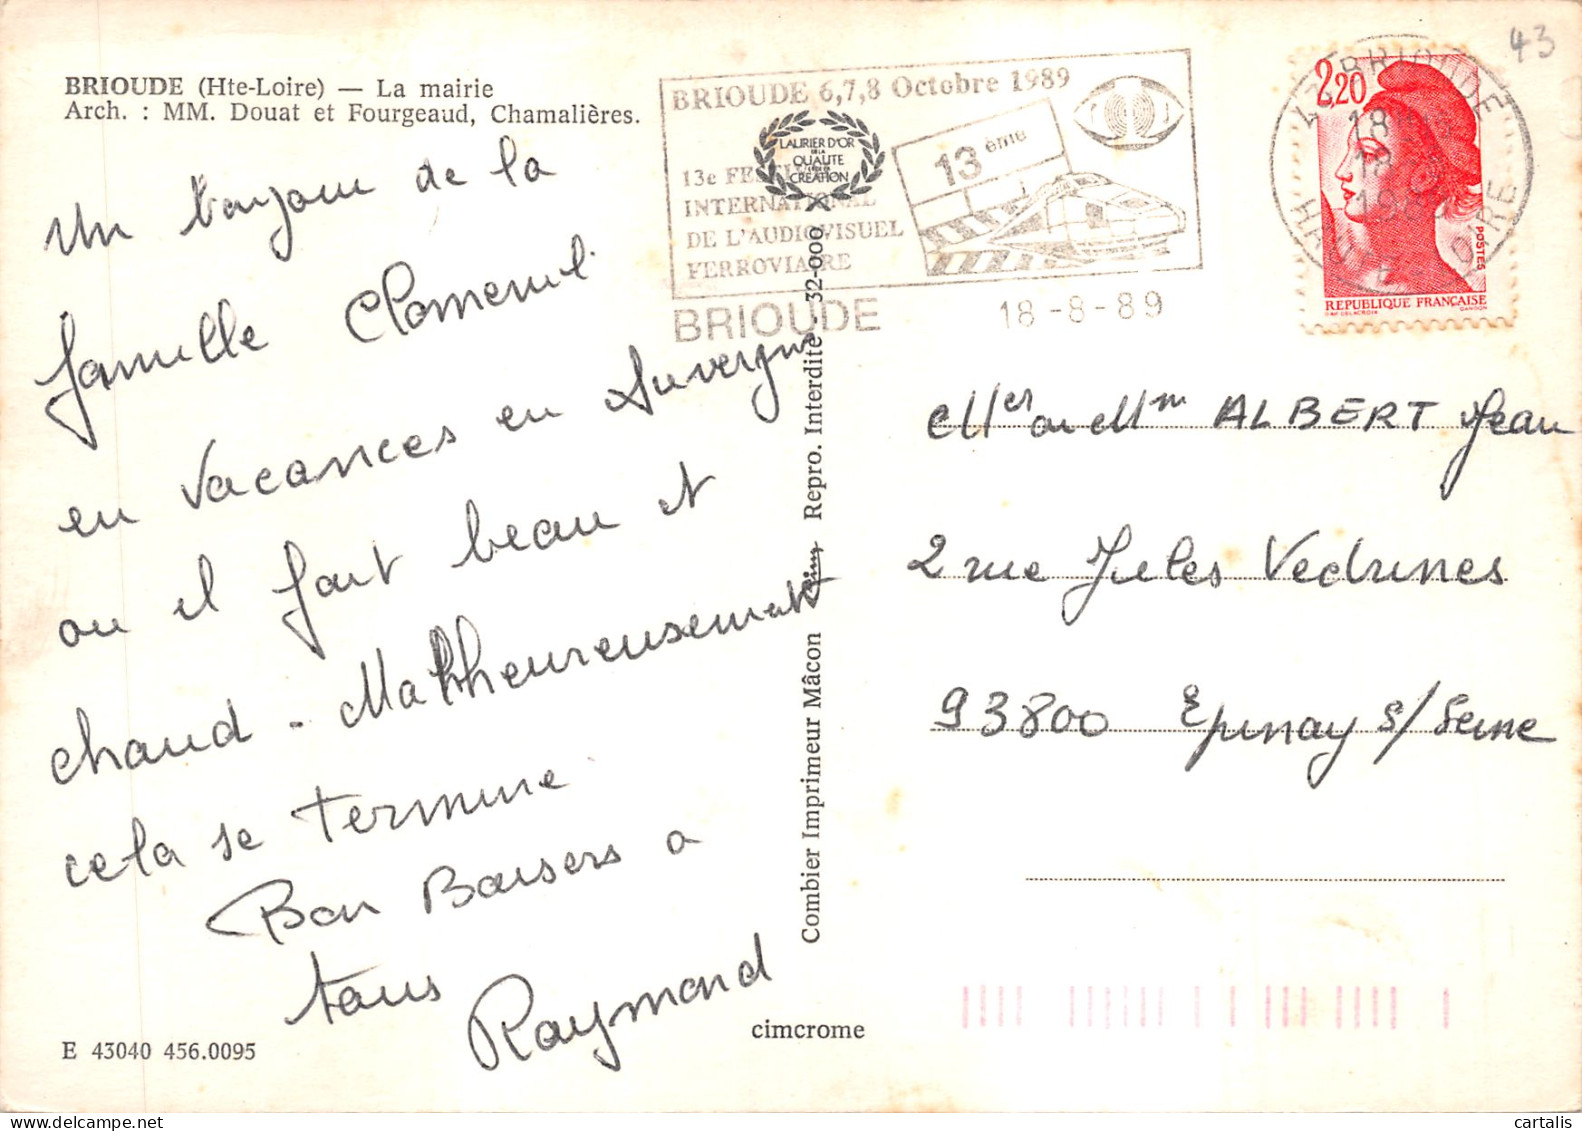 BRIOUDE (Hte-Loire) — La mairie
Arch. : MM. Douat et Fourgeaud, Chamalières.
Un bonjour de la
famille
en vacances en Auvergne
ou il fait beau et
chaud - Malheureusement
cela se termine
Bon Baisers a
tous
Raymond
E 43040 456.0095
cimcrome
Combier Imprimeur Mâcon cim Repro. Interdite 32-000
BRIOUDE 6,7,8 Octobre 1989
13e FESTIVAL
INTERNATIONAL
DE L'AUDIOVISUEL
FERROVIAIRE
13 ème
LAURIER D'OR
DE LA
QUALITE
CREATION
BRIOUDE
18-8-89
43 BRIOUDE
HAUTE LOIRE
18
18-8
1989
2,20
POSTES
REPUBLIQUE FRANÇAISE
D'AP. DELACROIX GANDON
43
Mer ou Mm ALBERT Jean
2 rue Jules Vedrines
93800 Epinay s/Seine
cartalis
delcampe.net